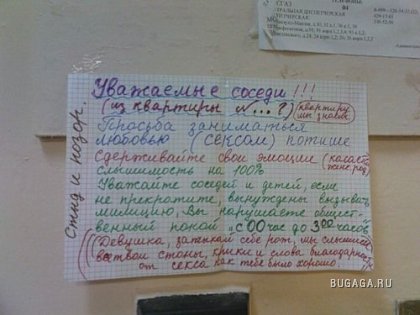 ТЕЛЕФОНЫ
01
Уважаемые соседи!!!
(из квартиры №...?) (квартиру мы знаем)
Просьба заниматься
любовью (сексом) потише
Сдерживайте свои эмоции
слышимость на 100%
Уважайте соседей и детей, если
не прекратите, вынуждены вызывать
милицию, Вы нарушаете общест-
венный покой "с 00 час до 300 часов
(Девушка, затыкай себе рот, мы слышим
все твои стоны, крики и слова благодарности
от секса как тебе было хорошо.)
Стыд и позор.
BUGAGA.RU